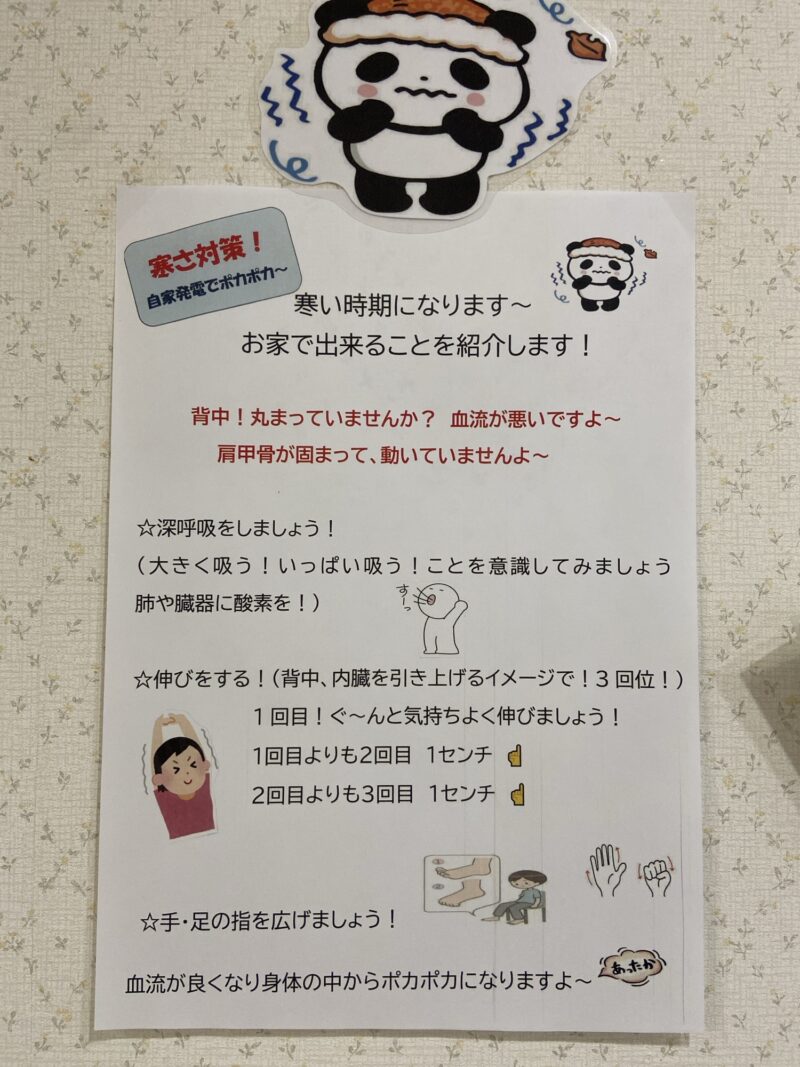 寒さ対策！
自家発電でポカポカ～
寒い時期になります～
お家で出来ることを紹介します！
背中！丸まっていませんか？ 血流が悪いですよ～
肩甲骨が固まって、動いていませんよ～
☆深呼吸をしましょう！
（大きく吸う！いっぱい吸う！ことを意識してみましょう
肺や臓器に酸素を！）
すーっ
☆伸びをする！（背中、内臓を引き上げるイメージで！３回位！）
１回目！ぐ～んと気持ちよく伸びましょう！
1回目よりも2回目 1センチ ☝
2回目よりも3回目 1センチ ☝
①
②
☆手・足の指を広げましょう！
血流が良くなり身体の中からポカポカになりますよ～
あったか